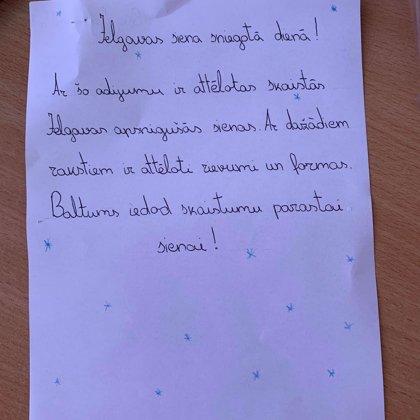 Jelgavas siena sniegotā dienā!
Ar šo adījumu ir attēlotas skaistās
Jelgavas apsnigušās sienas. Ar dažādiem
rakstiem ir attēloti rievumi un formas.
Baltums iedod skaistumu parastai
sienai!